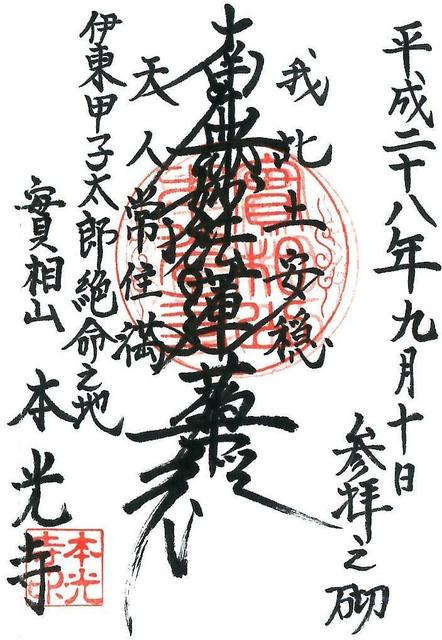 平成二十八年九月十日
参拝之砌
我此土安穏
南無妙法蓮華経
天人常住満
伊東甲子太郎絶命之地
實相山
本光寺
本光
寺印